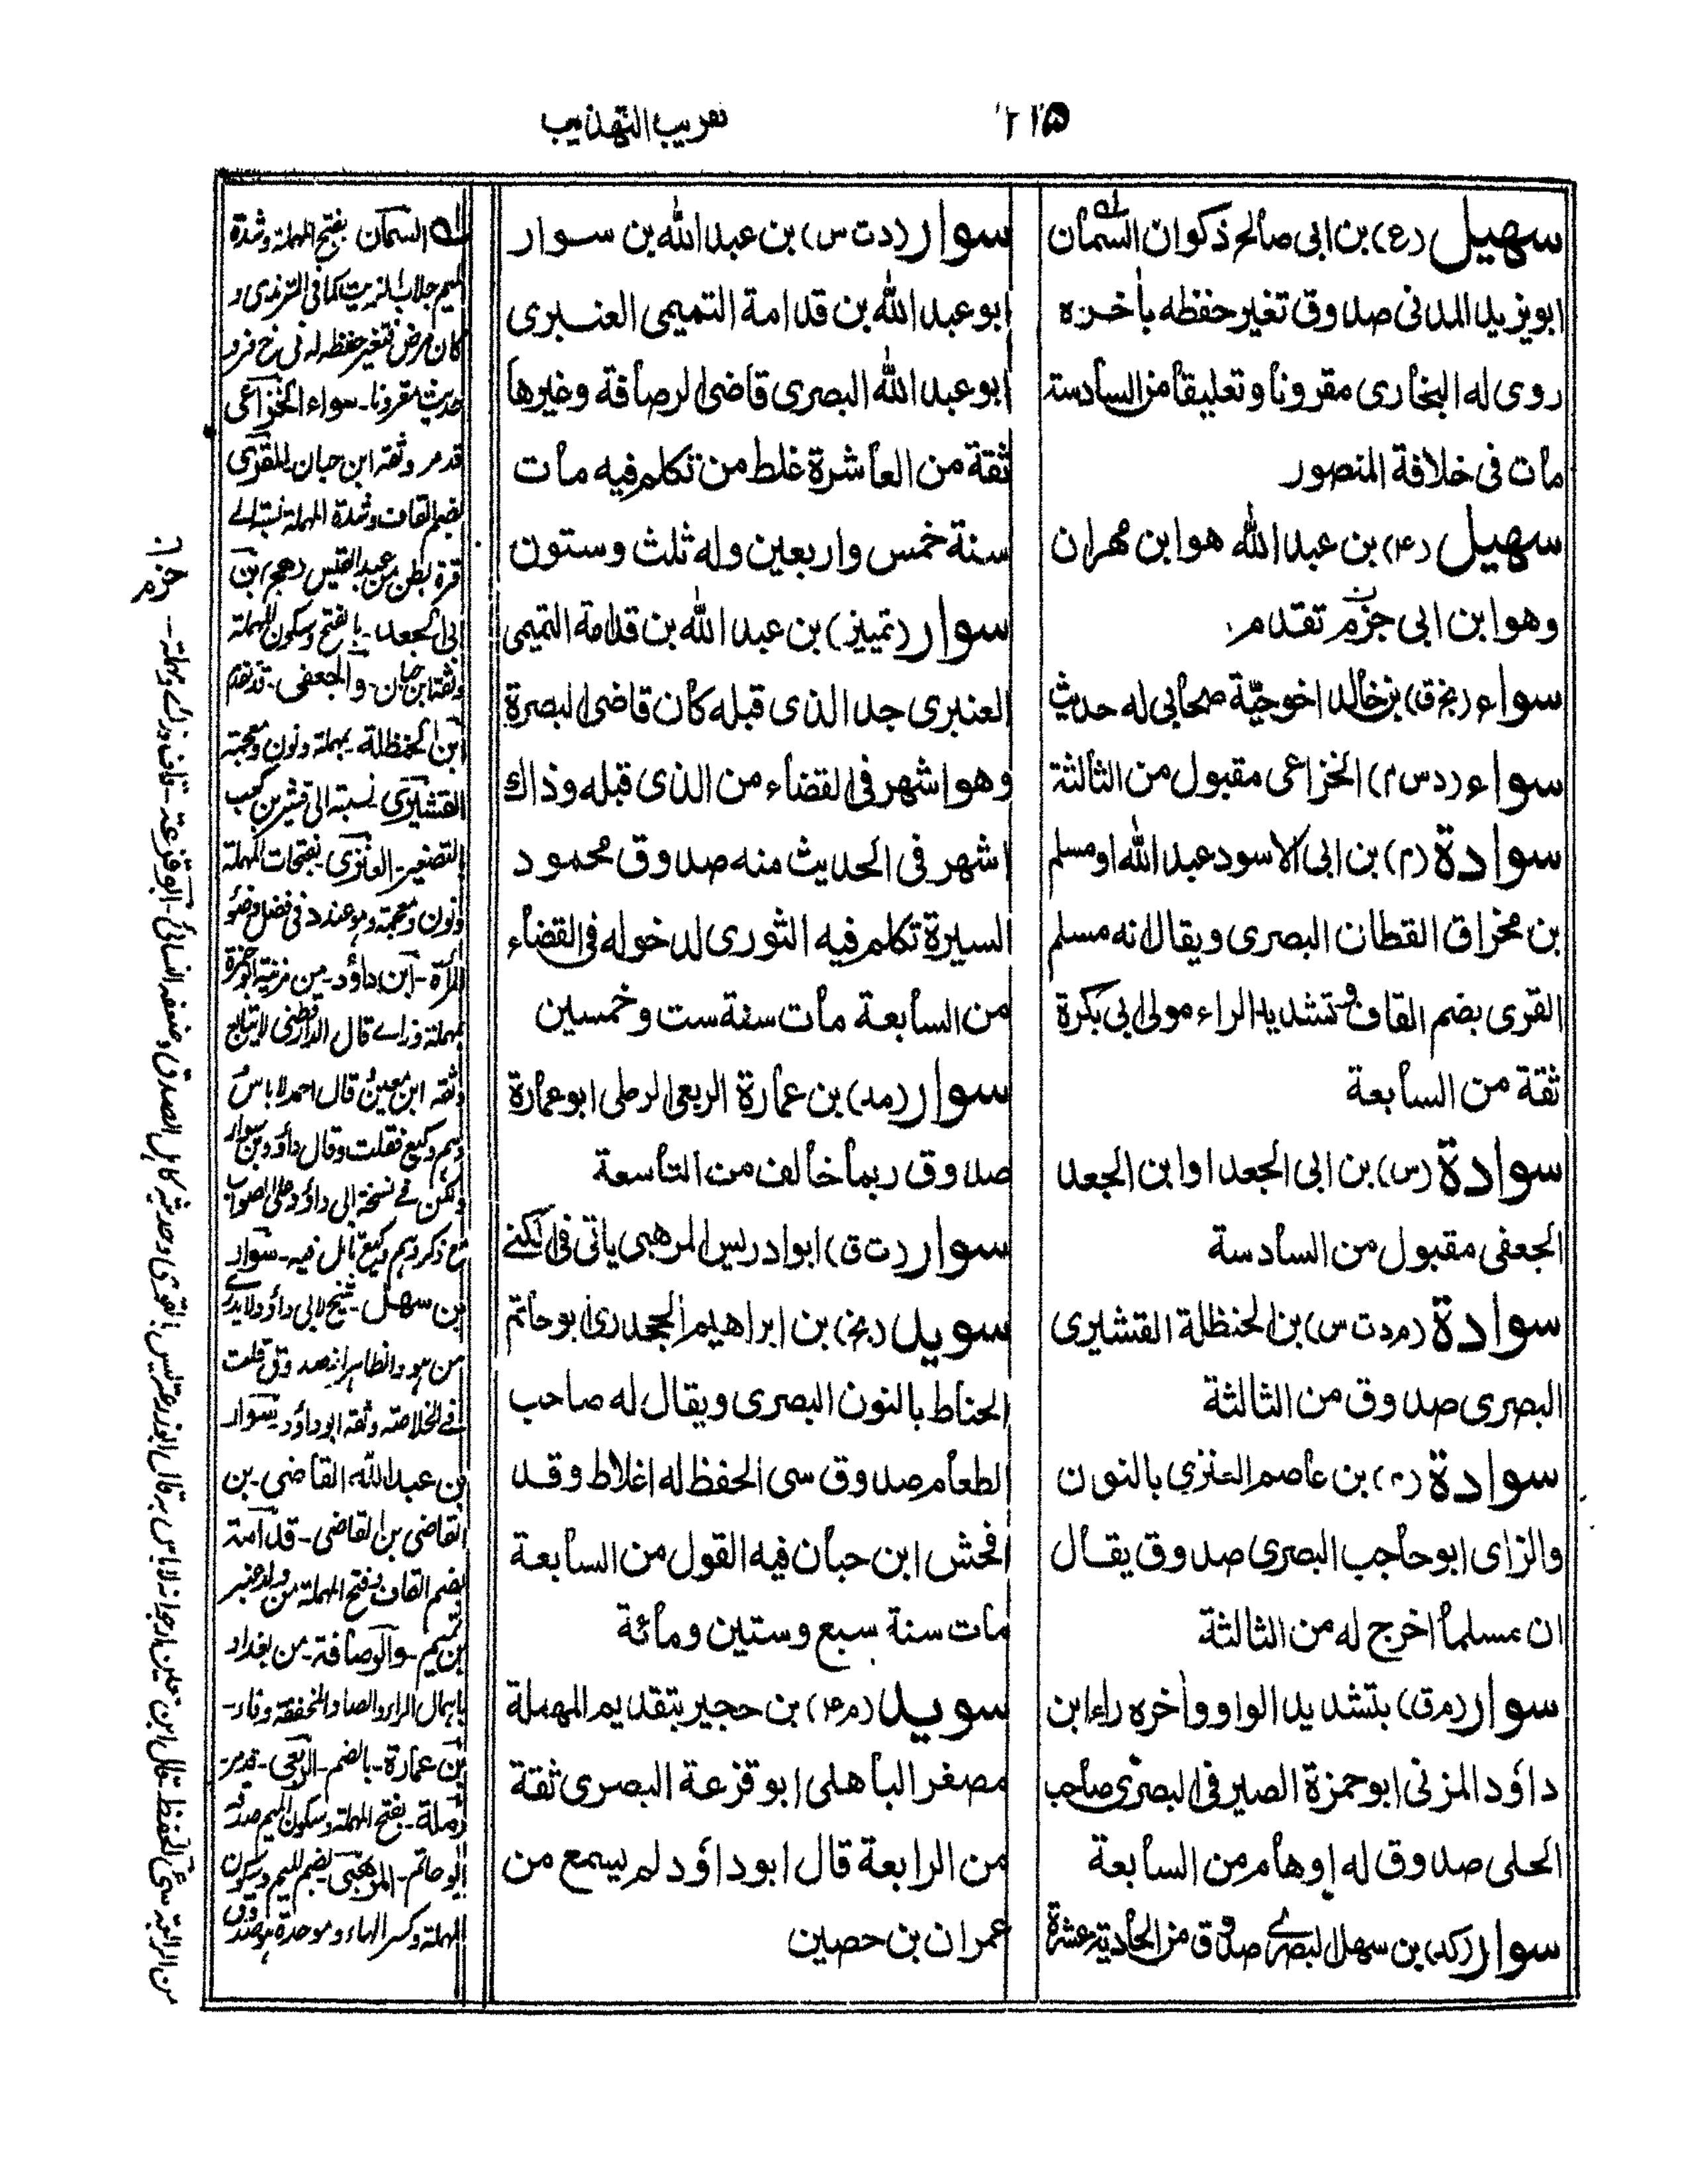 ٢١٥
تقريب التهذيب
سهيل (ع) بن ابى صالح ذكوان السمان
ابويزيد المدنى صدوق تغير حفظه بأخره
روى له البخارى مقرونا وتعليقا من السادسة
مات فى خلافة المنصور
سهيل (۴) بن عبد الله هو ابن مهران
وهو ابن ابى حزم تقدم
سواء (بخ ق) بن خالد اخو حبّة صحابى له حديث
سواء (د س) الخزاعى مقبول من الثالثة
سوادة (م) بن ابى الاسود عبد الله او مسلم
بن مخراق القطان البصرى ويقال انه مسلم
القرى بضم القاف وتشديد الراء مولى ابى بكرة
ثقة من السابعة
سوادة (س) بن ابى الجعد او ابن الجعد
الجعفى مقبول من السادسة
سوادة (م د ت س) بن الحنظلة القشيرى
البصرى صدوق من الثالثة
سوادة بن عاصم العنزي بالنون
والزاى ابو حاجب البصرى صدوق يقال
ان مسلما اخرج له من الثالثة
سوار (م ق) بتشديد الواو وأخره راء ابن
داؤد المزنى ابو حمزة الصيرفى البصرى صاحب
الحلى صدوق له اوهام من السابعة
سوار (كد) بن سهل البصرى صدوق من الحادية عشرة
سوار (د ت س) بن عبد الله بن سوار
ابو عبد الله بن قدامة التميمى العنبرى
ابو عبد الله البصرى قاضى الرصافة وغيرها
ثقة من العاشرة غلط من تكلم فيه مات
سنة خمس واربعين وله ثلث وستون
سوار (تمييز) بن عبد الله بن قدامة التميمى
العنبرى جد الذى قبله كان قاضى البصرة
وهو اشهر فى القضاء من الذى قبله وذاك
اشهر فى الحديث منه صدوق محمود
السيرة تكلم فيه الثورى لدخوله فى القضاء
من السابعة مات سنة ست وخمسين
سوار (مد) بن عمارة الربعى الرملى ابو عمارة
صدوق ربما خالف من التاسعة
سوار (ت ق) ابو ادريس المرهبى ياتى فى الكنے
سويد (بخ) بن ابراهيم الجحدرى ابو حاتم
الحناط بالنون البصرى ويقال له صاحب
الطعام صدوق سى الحفظ له اغلاط وقد
افحش ابن حبان فيه القول من السابعة
مات سنة سبع وستين ومائة
سويد (م ۴) بن حجير بتقديم المهملة
مصغر الباهلى ابو قزعة البصرى ثقة
من الرابعة قال ابو داؤد لم يسمع من
عمران بن حصين
له السمان بفتح المهملة وشدة
الميم جلاب الزيت كما فى الترمذى و
كان مرض فتغير حفظه له فى خ فرد
حديث مقرونا ـ سواء الخزاعى
قدمر وثقه ابن حبان للقرى
بضم القاف وشدة المهملة نسبة الے
قرة بطن من عبد القيس بن
ابى الجعد ـ بالفتح وسكون المهملة
وثقه ابن حبان ـ والجعفى ـ قد تقدم
ابن الحنظلة ـ بمهملة ونون ومعجمة
القشيرى نسبة الى قشير بن كعب
بالتصغير ـ العنزى بفتحات المهملة
ونون ومعجمة وهو عند د فى فضل وضوء
المرأة ـ ابن داؤد ـ من مزينة ابو حمزة
بمهملة وزاے قال الدارقطنى لا يتابع
وثقه ابن معين قال احمد لا باس
وهم وكيع فقلت وقال داؤد بن سوار
ولكن فے نسخة ابى داؤد على الصواب
مع ذكر وهم وكيع تامل فيه ـ سوار
بن سهل ـ شيخ لابى داؤد لا يدرے
من هو والظاهر انه صدوق قلت
فے الخلاصة وثقه ابو داؤد سوار
بن عبد الله القاضى ـ بن
القاضى بن القاضى ـ قدامة
بضم القاف وفتح المهملة من ولد عنبر
بن تميم ـ والرصافة ـ من بغداد
باهمال الراء والصاد المخففة وفاء ـ
بن عمارة ـ بالضم ـ الربعى ـ قدمر ـ
رملة ـ بفتح المهملة وسكون الميم
ابو حاتم ـ المرهبى ـ بضم الميم وسكون
المهملة وكسر الهاء وموحدة هو صدوق
من الرابعة سىئ الحفظ ـ قال ابن معين ارجو انه لا باس به قال ابو زرعة ليس بالقوى وحديثه كاهل الصدق وضعفه النسائى ـ ابو قزعة ـ قاف وزاے ومهملة ـ